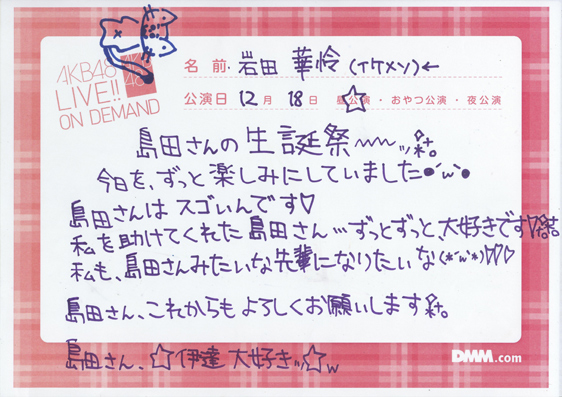 AKB48
LIVE!!
ON DEMAND
名前 岩田 華怜 (イケメン)←
公演日 12月 18日 ☆昼公演・おやつ公演・夜公演
島田さんの生誕祭〜〜ッ
今日を、ずっと楽しみにしていました●´ω`●
島田さんはスゴいんです♡
私を助けてくれた島田さん…ずっとずっと、大好きです♡
私も、島田さんみたいな先輩になりたいな(*´ω`*)♡♡♡
島田さん、これからもよろしくお願いします
島田さん、☆伊達 大好きッ☆w
DMM.com